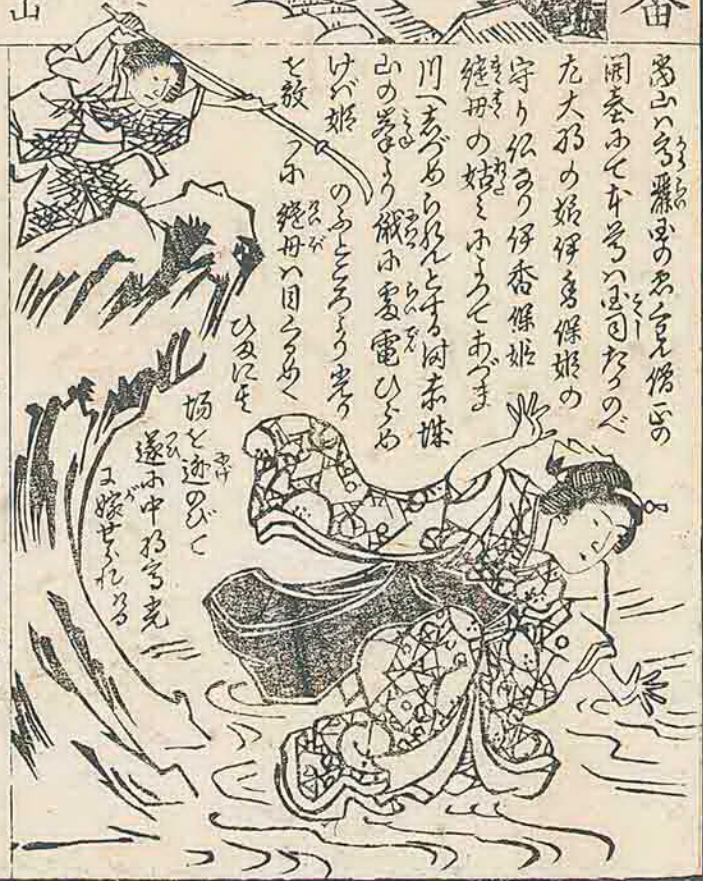 番
山
当山ハ高麗国の恵貫僧正の
開基にて本尊ハ国司たかのべ
左大将の姫伊香保姫の
守り仏なり伊香保姫
継母の姑ミによつてあづま
川へしづめられんとする時赤城
山の峯より俄に雷電ひらめ
けバ姫のふところより光り
を放つに継母ハ目くらめく
ひまに其
場を逃のびて
遂に中将高光
に嫁せられける